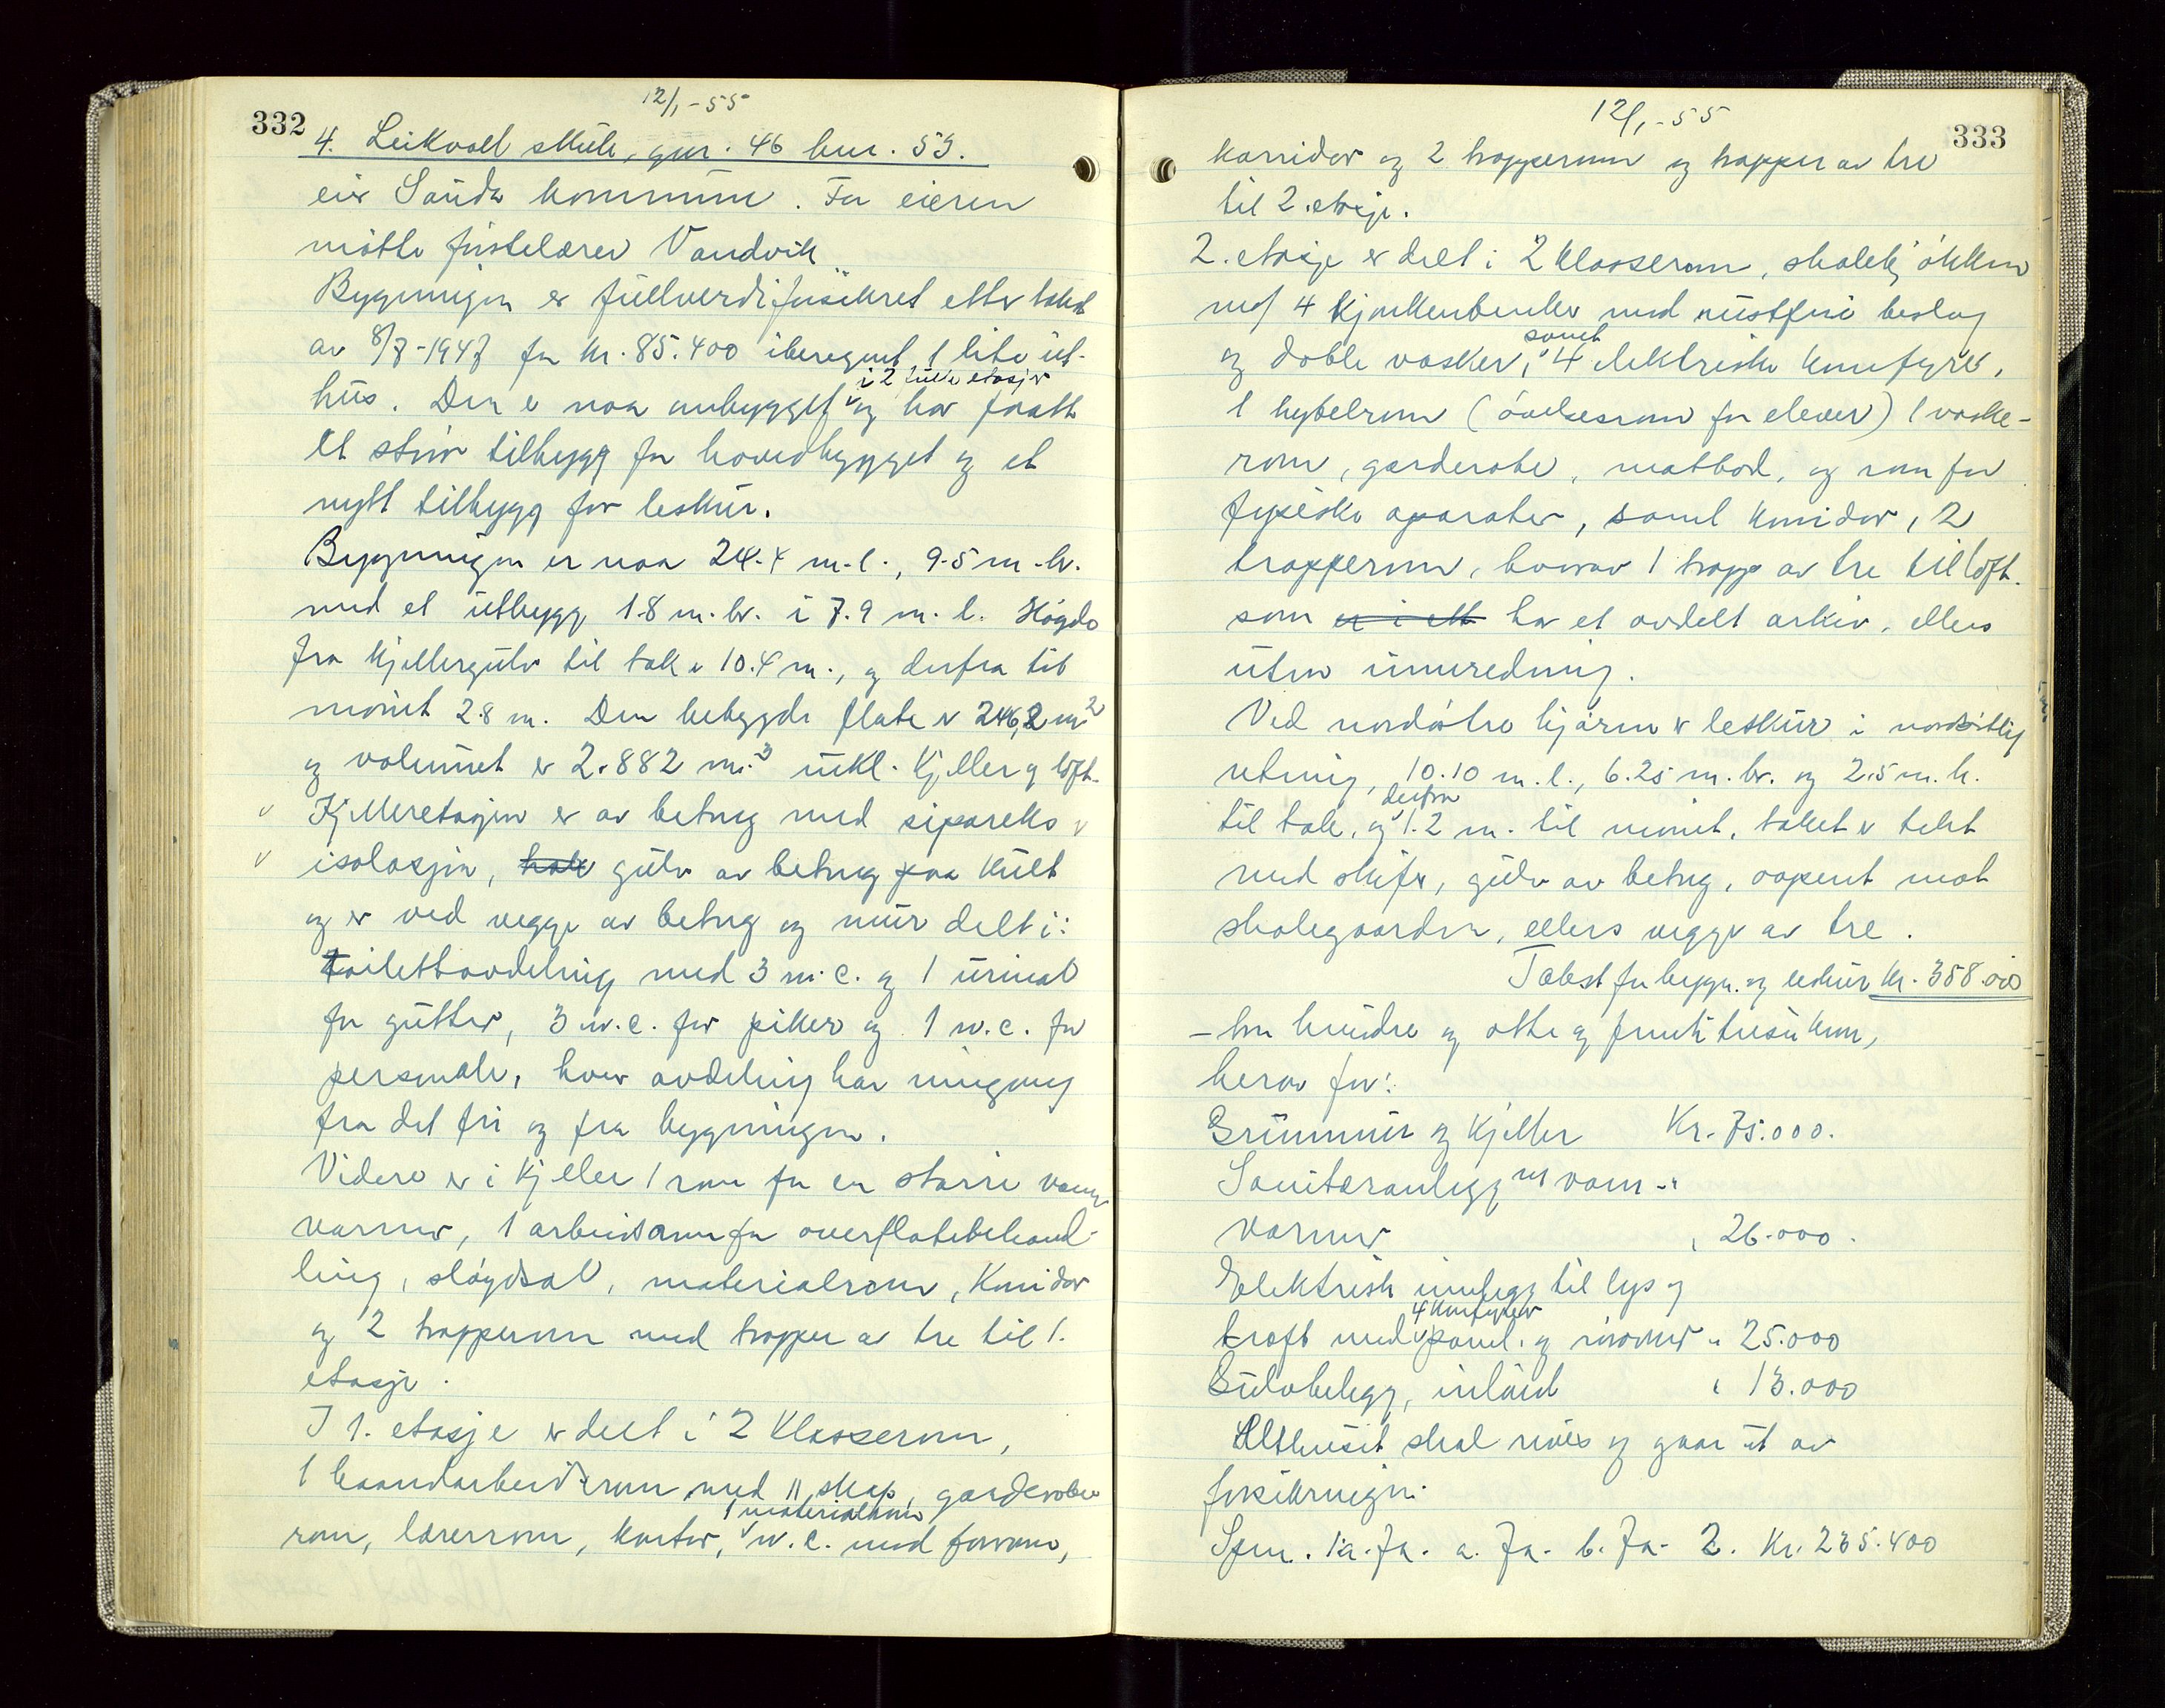 332
12/1-55
4. Leikvoll skule, gnr. 46 bnr. 53.
eier Sauda kommune. For eieren
møtte førstelærer Vandvik
Bygningen er fullverdiforsikret etter takst
av 8/8-1947 for kr. 85.400 iberegnet 1 lite ut-
hus. Den er noa ombygget i 2 fulle etasjer og har faatt
et større tilbygg for hovedbygget og et
nytt tilbygg for leskur.
Bygningen er noa 24.4 m.l., 9.5 m.br.
med et utbygg 1.8 m.br. i 7.9 m.l. Høgda
fra kjellergulv til tak er 10.4 m., og derfra til
mønet 2.8 m. Den bebygde flate er 246,2 m2
og volumet er 2.882 m.3 inkl. kjeller og loft.
Kjelleretasjen er av betong med siporeks
isolasjon, gulv av betong paa kult
og er ved vegger av betong og mur delt i:
Toilettavdeling med 3 w.c. og 1 urinal
for gutter, 3 w.c. for piker og 1 w.c. for
personale, hver avdeling har inngang
fra det fri og fra bygningen.
Videre er i kjeller 1 rom for en større vann
varmer, 1 arbeidsrom for overflatebehand-
ling, sløydsal, materialrom, korridor
og 2 trapperom med trapper av tre til 1.
etasje.
I 1. etasje er delt i 2 klasserom,
1 haandarbeidsrom med 11 skap, garderobe
rom, lærerrom, kontor, 1 materialrom, w.c. med forrom,
333
12/1-55
korridor og 2 trapperom og trapper av tre
til 2. etasje.
2. etasje er delt i 2 klasserom, skolekjøkken
m/ 4 kjøkkenbenker med rustfrie beslag
og doble vasker, samt 4 elektriske komfyrer,
1 hybelrom (øvelsesrom for elever) 1 vaske-
rom, garderobe, matbod, og rom for
fysiske aparater, samt korridor, 2
trapperom, hvorav 1 trapp av tre til loft.
som er i ett har et avdelt arkiv, ellers
uten innredning.
Ved nordøstre hjørne er leskur i nordøstlig
retning, 10.10 m.l., 6.25 m.br. og 2.5 m.h.
til tak, og derfra 1.2 m. til mønet, taket er tekt
med skifer, gulv av betong, aapent mot
skolegaarden, ellers vegger av tre.
Takst for bygn. og leskur kr. 358.000
- tre hundre og otte og femti tusen kroner,
herav for:
Grunnmur og kjeller Kr. 75.000.
Sanitæranlegg m/ vann-
varmer " 26.000.
Elektrisk innlegg til lys og
kraft med 4 komfyrer panel. og rørovner " 25.000
Gulvbelegg, inlaid " 13.000
Uthuset skal rives og gaar ut av
forsikringen.
Spm. 1a. Ja. a. Ja. b. Ja. 2. Kr. 235.400